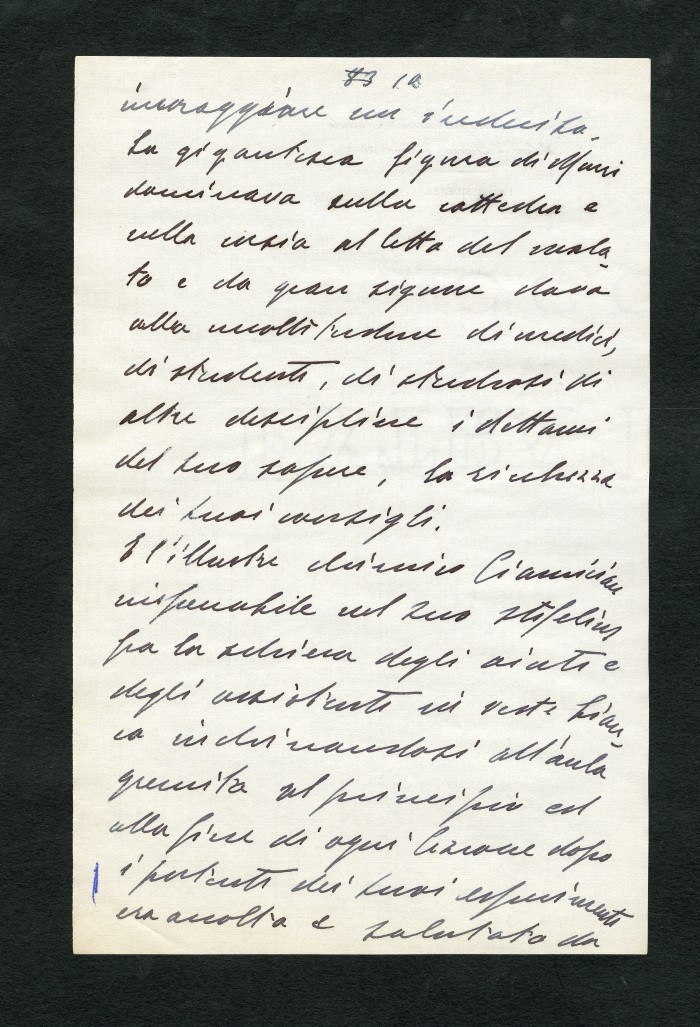 83 12
incoraggiare un indeciso.
La gigantesca figura di Murri
dominava sulla cattedra e
nella corsia al letto del mala-
to e da gran signore dava
alla moltitudine di medici,
di studenti, di studiosi di
altre discipline i dettami
del suo sapere, la ricchezza
dei suoi consigli.
E l'illustre chimico Ciamician
inseparabile nel suo stifelius
fra la schiera degli aiuti e
degli assistenti in veste bian-
ca inchinandosi all'aula
gremita al principio ed
alla fine di ogni lezione dopo
i portenti dei suoi esperimenti
era accolto e salutato da